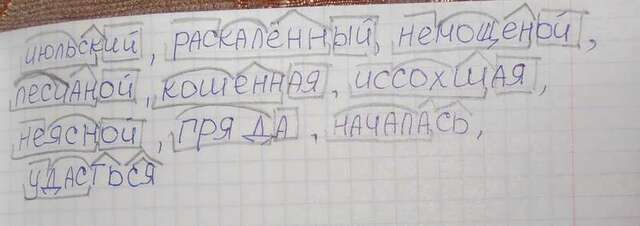 июльский, раскалённый, немощеной,
песчаной, кошенная, иссохшая,
неясной, гряда, началась,
удасться